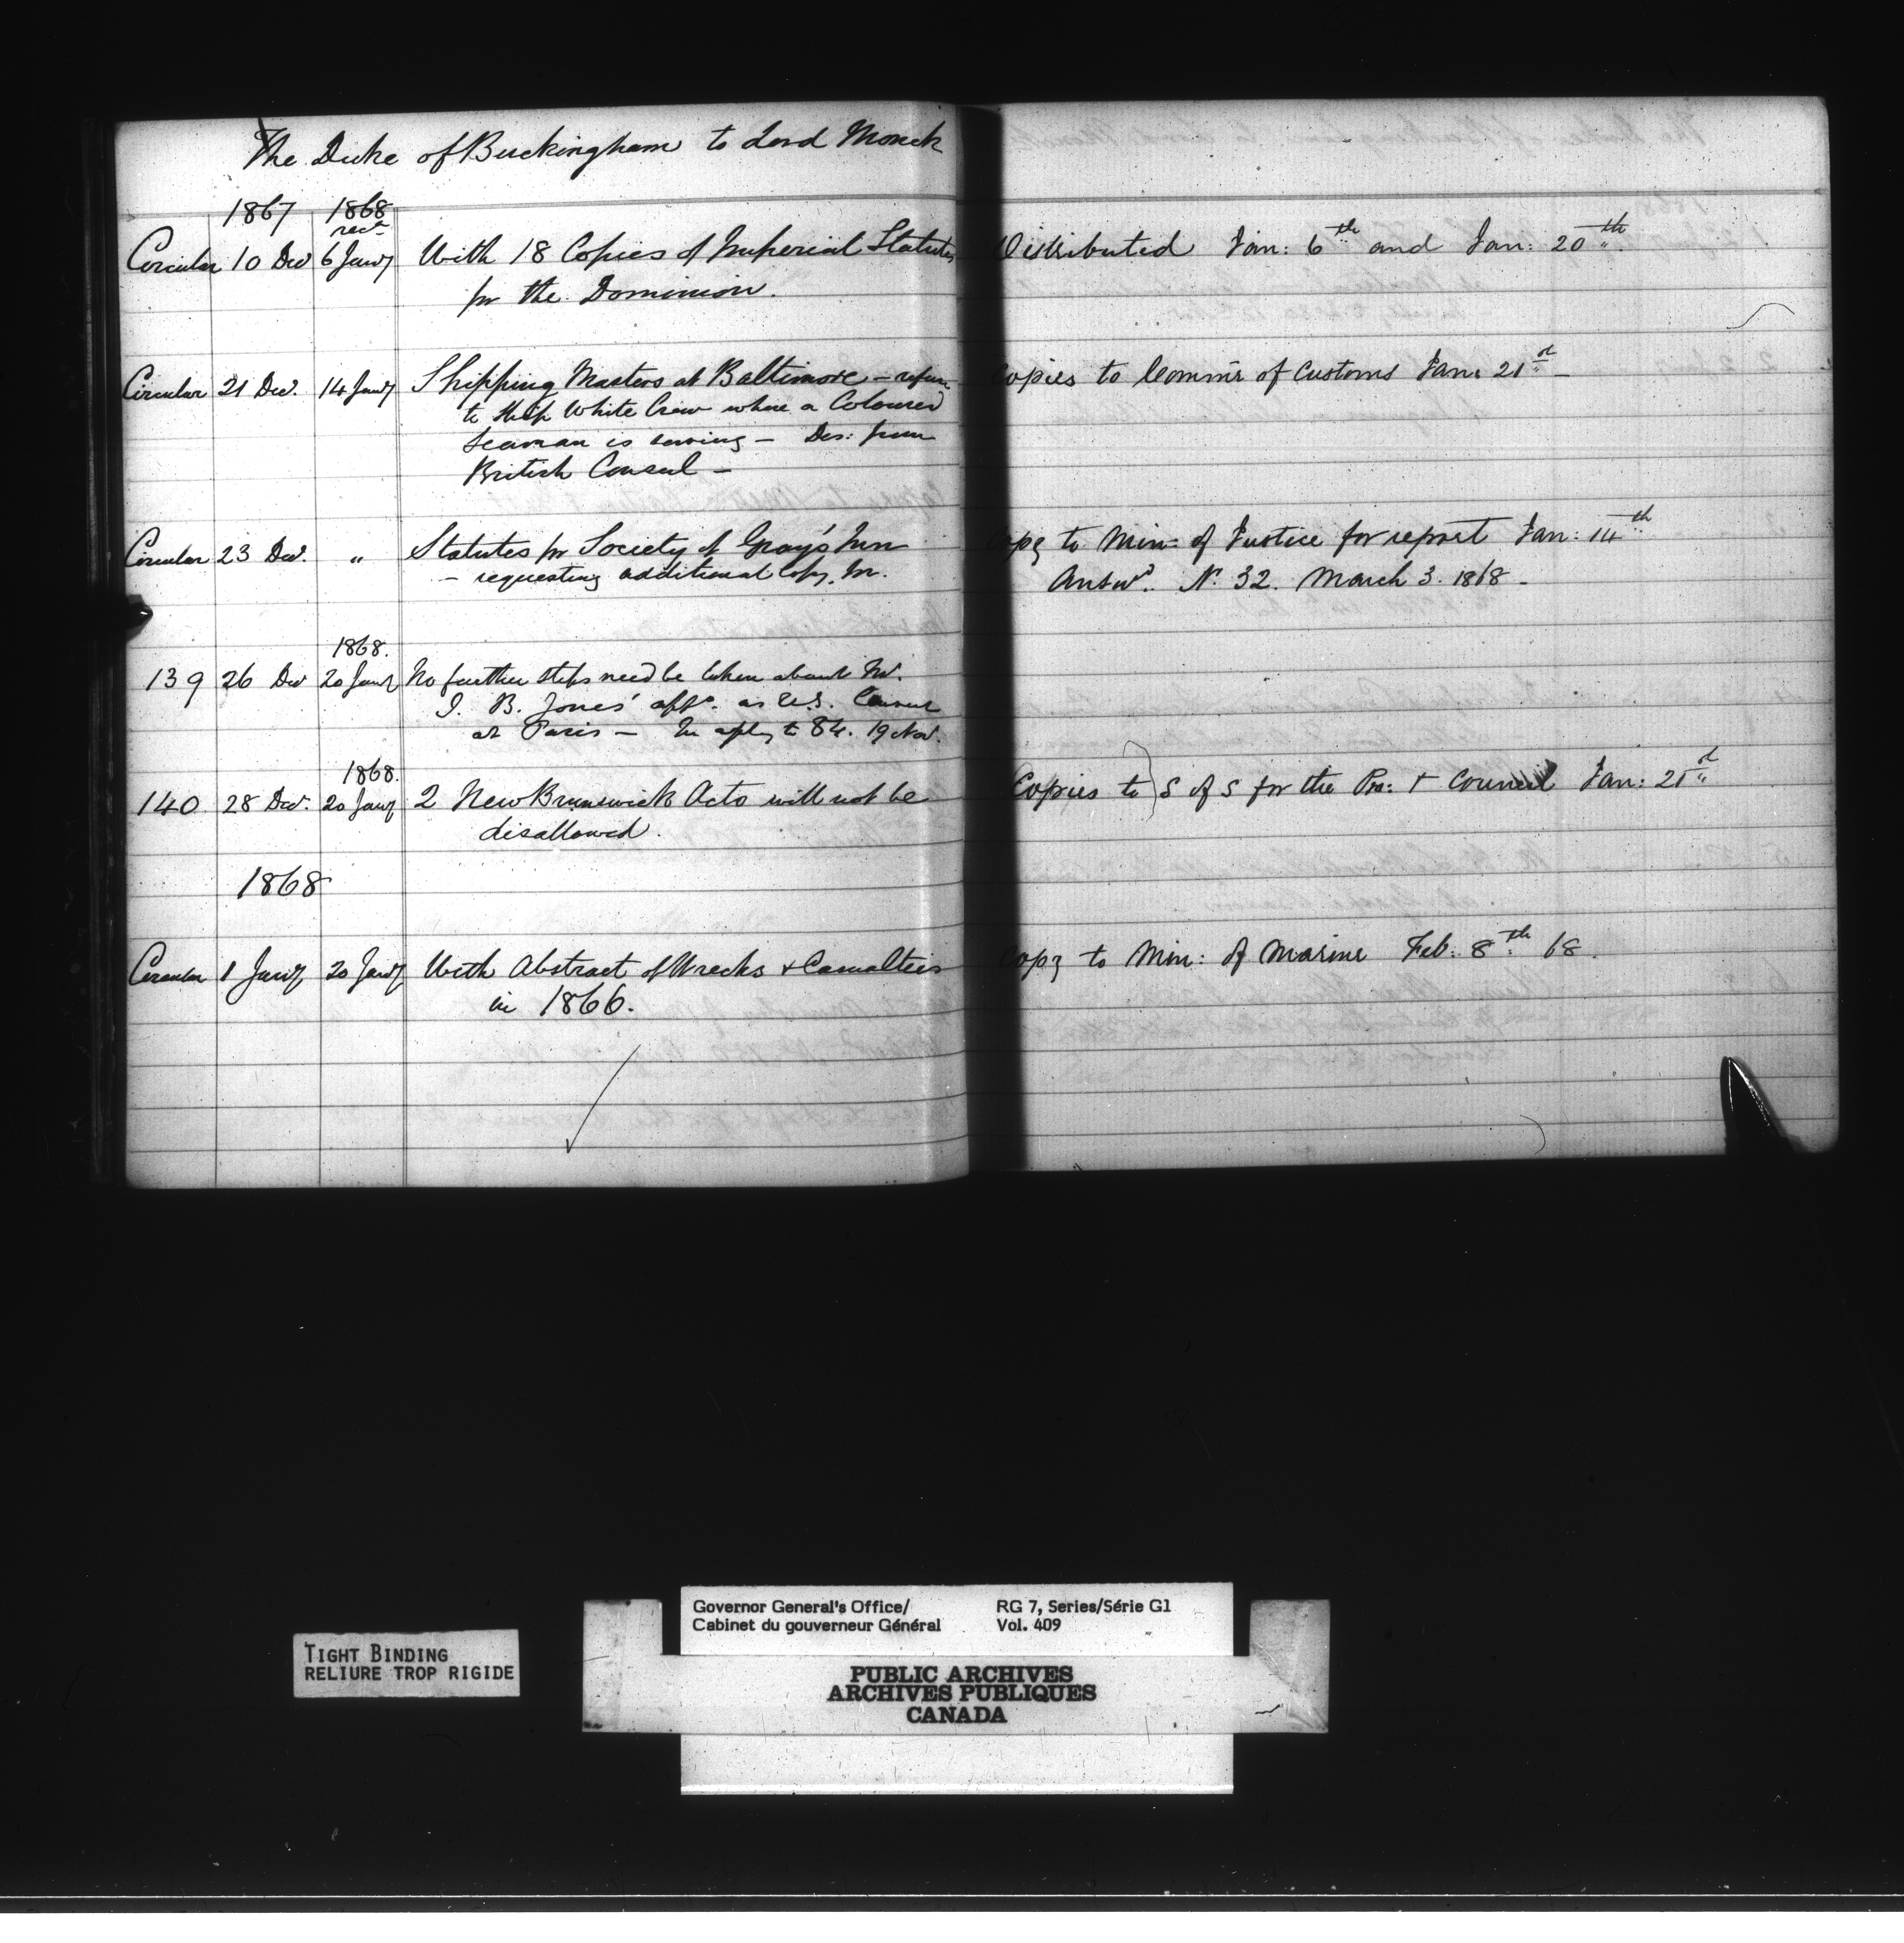 The Duke of Buckingham to Lord Monck
1867 1868
rec^d
Circular 10 Dec 6 Jan^y With 18 Copies of Imperial Statutes Distributed Jan: 6^th and Jan: 20^th
for the Dominion.
Circular 21 Dec. 14 Jan^y Shipping Masters at Baltimore - refuse Copies to Commrs of Customs Jan: 21^st -
to Ship White Crew where a Coloured
Seaman is serving - Des: from
British Consul -
Circular 23 Dec. " Statutes for Society of Gray's Inn Copy to Min: of Justice for report Jan: 14^th
- requesting additional Copy, &c. Answ^d. N^o. 32. March 3. 1868 -
1868.
139 26 Dec 20 Jan^y No further steps need be taken about Mr.
J. B. Jones' app^t. as U.S. Consul
at Paris - In reply to 84. 19 Nov.
1868.
140 28 Dec. 20 Jan^y 2 New Brunswick Acts will not be Copies to } S of S for the Pro: & Council Jan: 21^st
disallowed.
1868
Circular 1 Jan^y 20 Jan^y With Abstract of Wrecks & Casualties Copy to Min: of Marine Feb: 8^th 68.
in 1866.
Governor General's Office/ RG 7, Series/Série G1
Cabinet du gouverneur Général Vol. 409
TIGHT BINDING
RELIURE TROP RIGIDE
PUBLIC ARCHIVES
ARCHIVES PUBLIQUES
CANADA